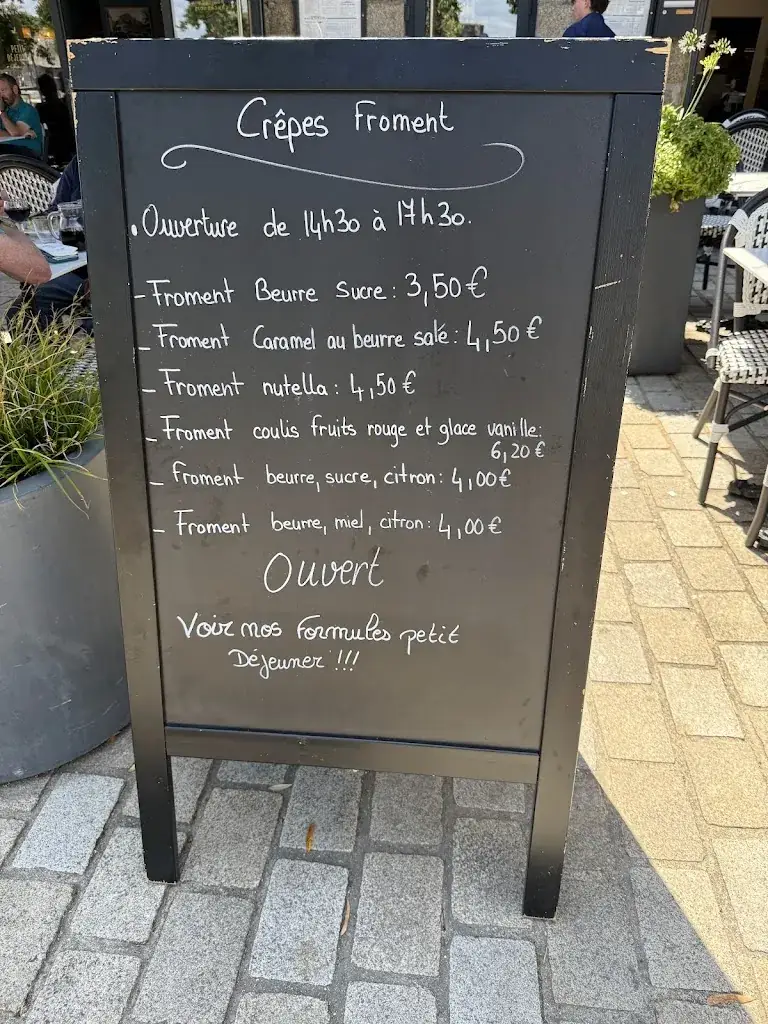 Crêpes Froment
. Ouverture de 14h30 à 17h30.
- Froment Beurre Sucre : 3,50 €
- Froment Caramel au beurre salé : 4,50 €
- Froment nutella : 4,50 €
- Froment coulis fruits rouge et glace vanille :
6,20 €
- froment beurre, sucre, citron : 4,00 €
- Froment beurre, miel, citron : 4,00 €
Ouvert
Voir nos Formules petit
Déjeuner !!!